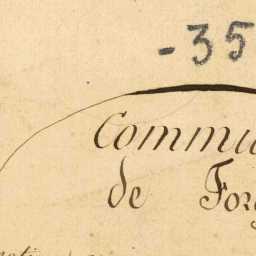 -35
Commu
de For